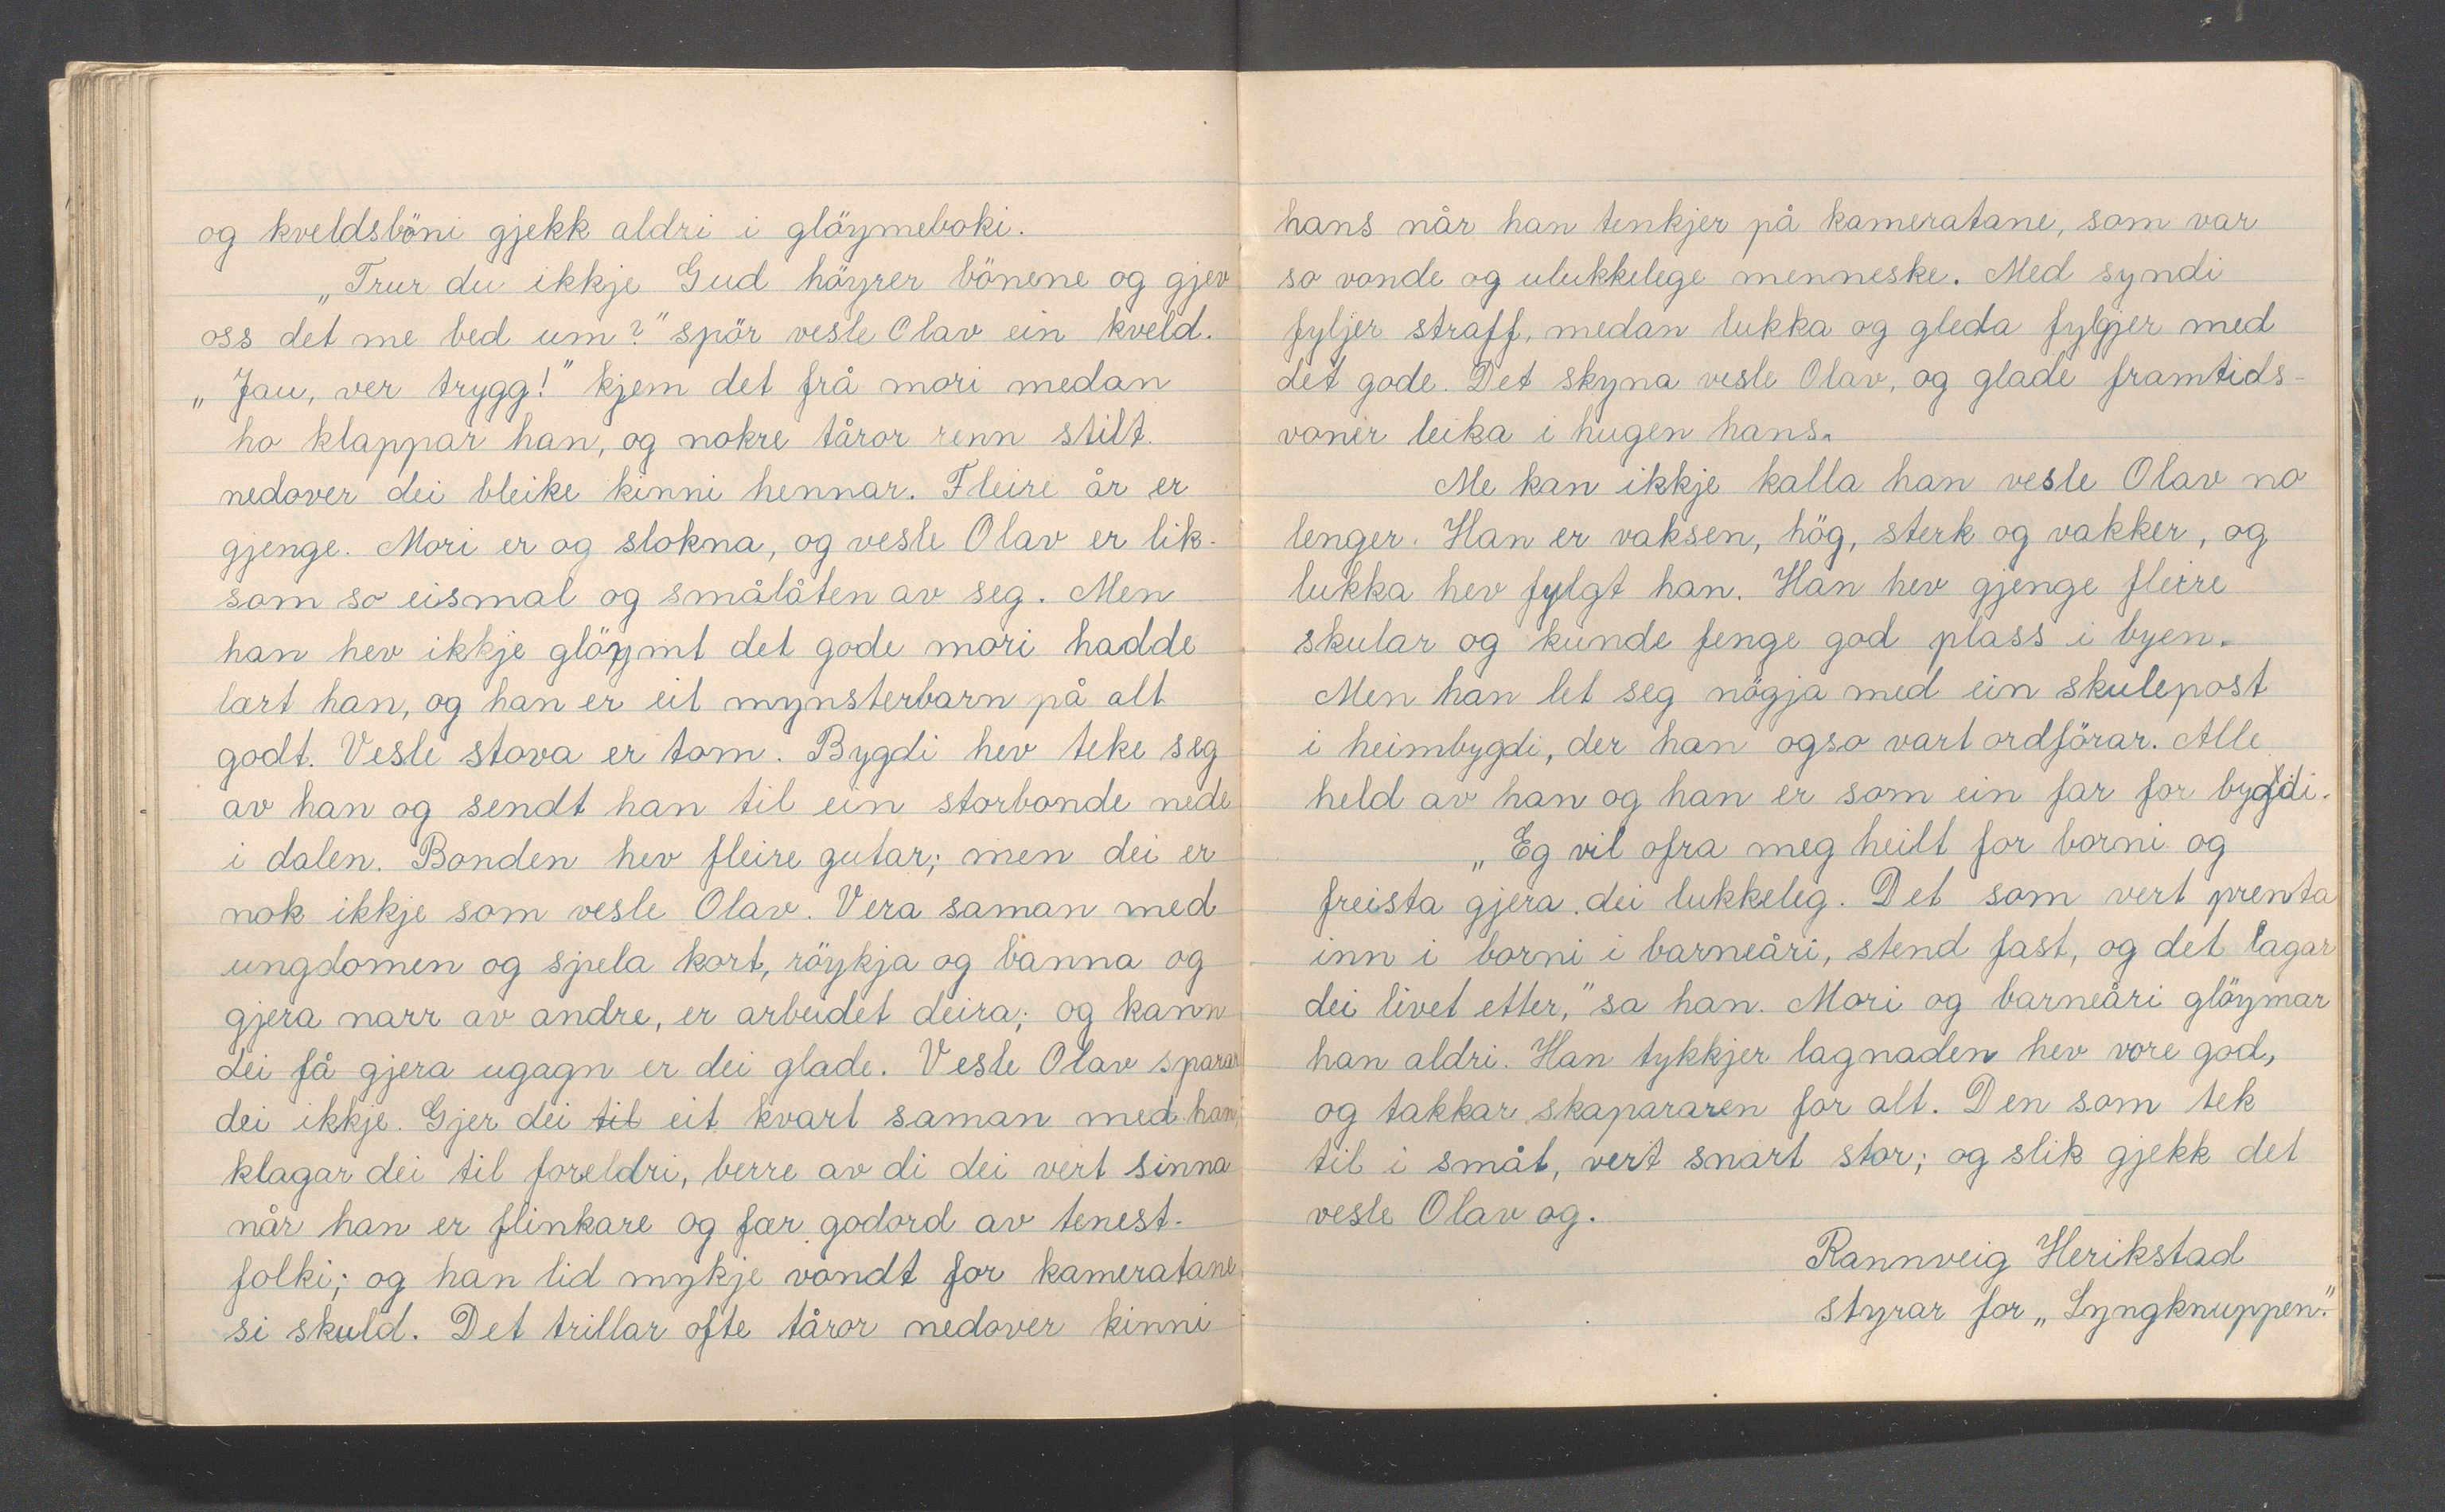 og kveldsböni gjekk aldri i glöymeboki.
„Trur du ikkje Gud höyrer bönene og gjev
oss det me bed um?" spör vesle Olav ein kveld.
„Jau, ver trygg!" kjem det frå mori medan
ho klappar han, og nokre tåror renn stilt
nedover dei bleike kinni hennar. Fleire år er
gjenge. Mori er og slokna, og vesle Olav er lik-
som so eismal og smålåten av seg. Men
han hev ikkje glöymt det gode mori hadde
lært han, og han er eit mynsterbarn på alt
godt. Vesle stova er tom. Bygdi hev teke seg
av han og sendt han til ein storbonde nede
i dalen. Bonden hev fleire gutar; men dei er
nok ikkje som vesle Olav. Vera saman med
ungdomen og spela kort, röykja og banna og
gjera narr av andre, er arbeidet deira; og kann
dei få gjera ugagn er dei glade. Vesle Olav sparar
dei ikkje. Gjer dei til eit kvart saman med han,
klagar dei til foreldri, berre av di dei vert sinna
når han er flinkare og fær godord av tenest-
folki; og han lid mykje vondt for kameratane
si skuld. Det trillar ofte tåror nedover kinni
hans når han tenkjer på kameratane, som var
so vonde og ulukkelege menneske. Med syndi
fyljer straff, medan lukka og gleda fylgjer med
det gode. Det skyna vesle Olav, og glade framtids-
voner leika i hugen hans.
Me kan ikkje kalla han vesle Olav no
lenger. Han er vaksen, hög, sterk og vakker, og
lukka hev fylgt han. Han hev gjenge fleire
skular og kunde fenge god plass i byen.
Men han let seg nögja med ein skulepost
i heimbygdi, der han ogso vart ordförar. Alle
held av han og han er som ein far for bygdi.
„Eg vil ofra meg heilt for borni og
freista gjera dei lukkeleg. Det som vert prenta
inn i borni i barneåri, stend fast, og det lagar
dei livet etter," sa han. Mori og barneåri glöymar
han aldri. Han tykkjer lagnaden hev vore god,
og takkar skapararen for alt. Den som tek
til i småt, vert snart stor; og slik gjekk det
vesle Olav og.
Rannveig Herikstad
styrar for „Lyngknuppen".